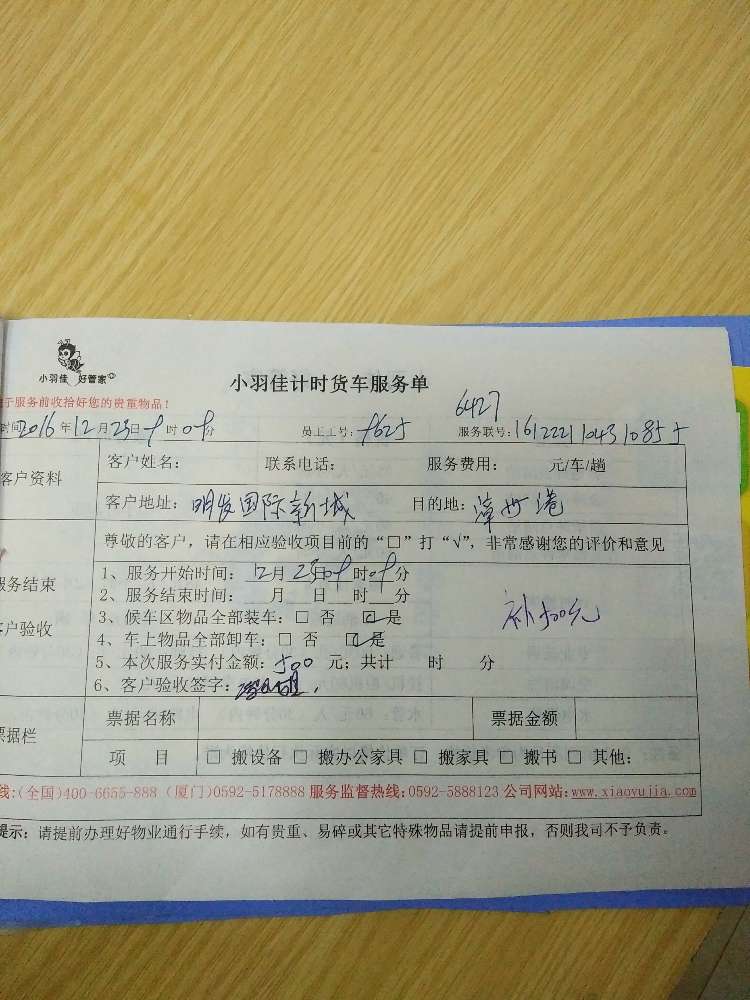 小羽佳 好管家
小羽佳计时货车服务单
于服务前收拾好您的贵重物品!
6427
时间2016年12月23日 时 分 员工工号: 服务联号:
客户资料 客户姓名: 联系电话: 服务费用: 元/车/趟
客户地址:明发国际新城 目的地:漳州港
尊敬的客户,请在相应验收项目前的“□”打“√”,非常感谢您的评价和意见
服务结束
客户验收
1、服务开始时间:12月23日 时 分
2、服务结束时间: 月 日 时 分
3、候车区物品全部装车:□ 否 ☑ 是
4、车上物品全部卸车:□ 否 ☑ 是
补500元
5、本次服务实付金额:500 元;共计 时 分
6、客户验收签字:
票据栏 票据名称 票据金额
项 目 □ 搬设备 □ 搬办公家具 □ 搬家具 □ 搬书 □ 其他:
线:(全国)400-6655-888 (厦门)0592-5178888 服务监督热线:0592-5888123 公司网站:www.xiaoyujia.com
提示:请提前办理好物业通行手续,如有贵重、易碎或其它特殊物品请提前申报,否则我司不予负责。